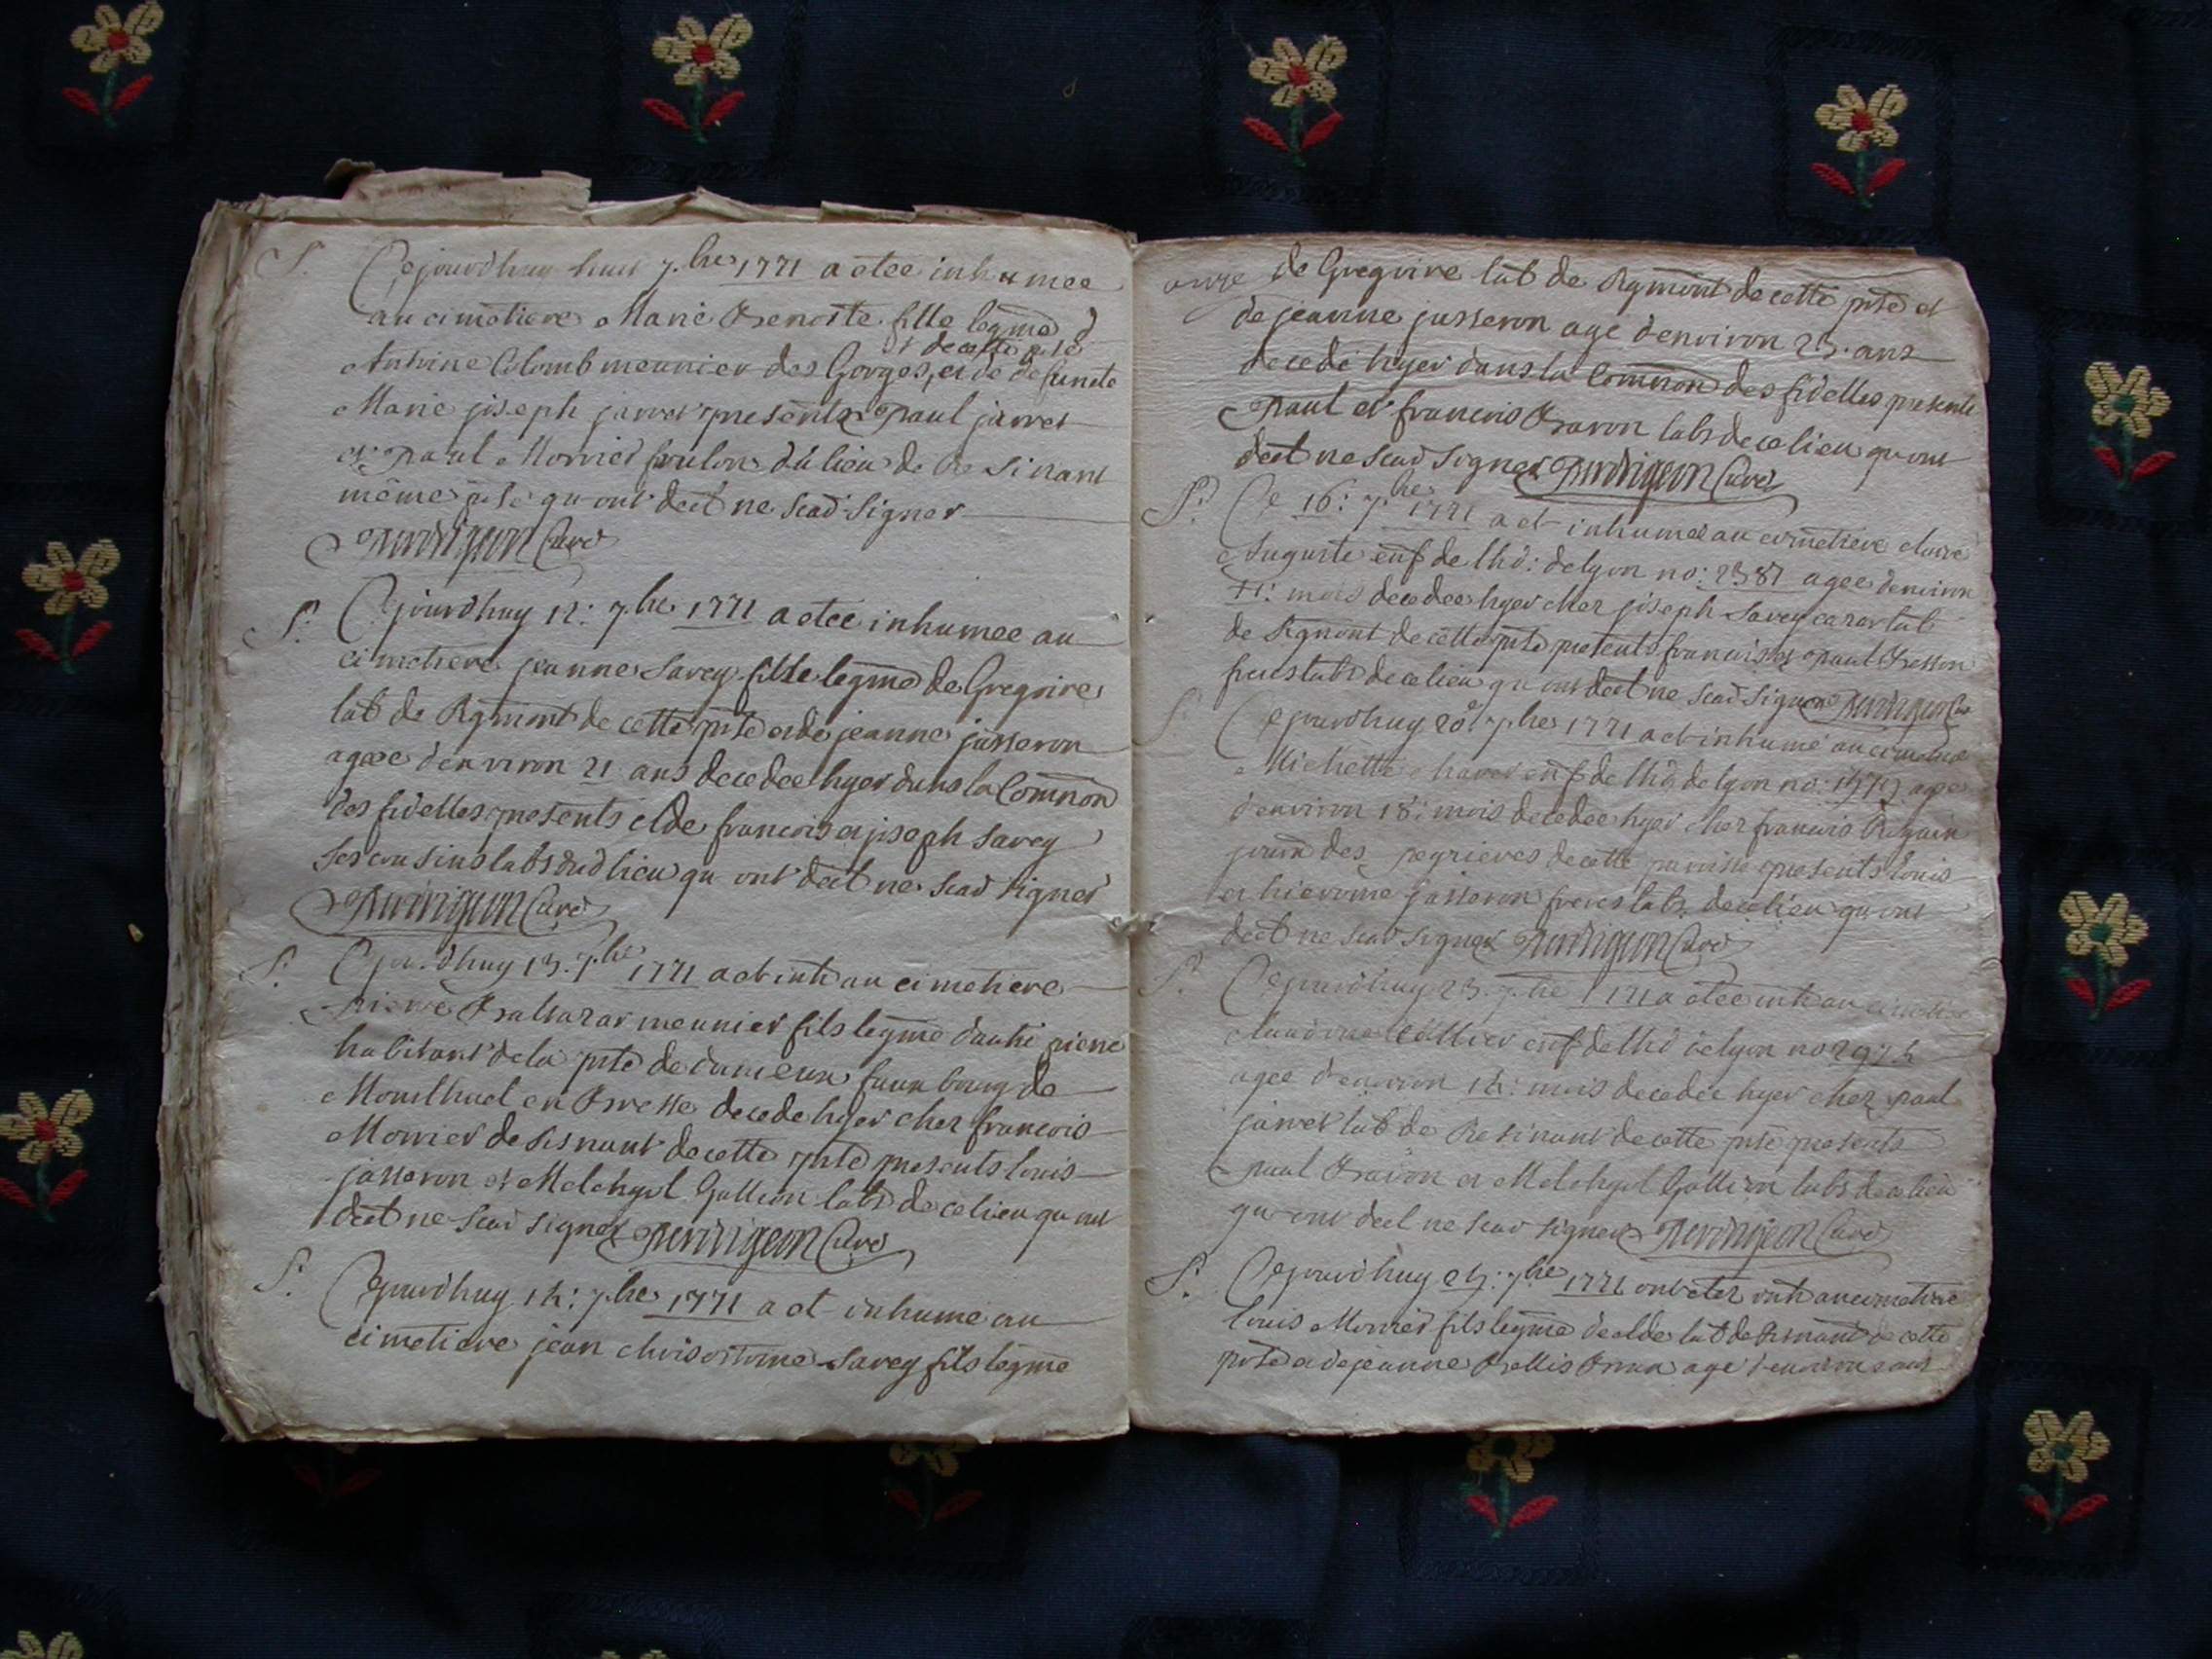 S. Cejourdhuy huit 7.bre 1771 a etee inhumee
au cimetiere Marie Benoite fille legme d
et de cette pse
Antoine Colomb meunier des Gorges, et de defuncte
Marie joseph jarret presents Paul jarret
et Paul Morier foulon du lieu de Resinant
même pse qu ont dect ne scad signer
Perdrigeon Curé
S. Cejourdhuy 12: 7.bre 1771 a etee inhumee au
cimetiere jeanne Savey fille legme de Gregoire
lab de Rymont de cette pse et de jeanne jasseron
agee d'environ 21 ans decedee hyer dans la Commnon
des fidelles presents elde francois et joseph Savey
ses cousins labs dud lieu qu ont dect ne scad signer
Perdrigeon Curé
S. Cejourdhuy 13. 7.bre 1771 a et inh au cimetiere
pierre Baltazar meunier fils legme d'autre pierre
habitant de la pse de faux bourg de
Monthuel en Bresse decede hyer chez francois
Morrier de Sisnant de cette pse presents louis
jasseron et Melchyol Gallion labs de ce lieu qu ont
dect ne scad signer Perdrigeon Curé
S. Cejourdhuy 14: 7.bre 1771 a et inhumé au
cimetiere jean chrisostome Savey fils legme
onze de Gregoire lab de Rymont de cette pse et
de jeanne jasseron age d'environ 23. ans
decedé hyer dans la Commnon des fidelles presents
Paul et francois Bravon labs de ce lieu qu ont
dect ne scad signer Perdrigeon Curé
S. Ce 16: 7.bre 1771 a et inhumee au cimetiere
Auguste enf de lhd: de lyon no: 2387 agee denviron
11: mois decedee hyer chez joseph Savey lab
de Sigmont de cette pse presents francois et paul Besson
freres labs de ce lieu qu ont dect ne scad signer Perdrigeon C
S. Cejourdhuy 20e 7.bre 1771 a et inhumé au cimetiere
Michette enf de lhd de lyon no: agee
d'environ 18: mois decedee hyer chez francois
journ des de cette paroisse presents louis
et hierome jasseron freres labs de ce lieu qu ont
dect ne scad signer Perdrigeon Curé
S. Cejourdhuy 23. 7.bre 1771 a etee inh au cimetiere
claudine enf de lhd de lyon no 2974
agee d'environ 14: mois decedee hyer chez paul
jarret lab de Resinant de cette pse presents
paul Bravon et Melchyol Gallion labs de ce lieu
qu ont dect ne scad signer Perdrigeon Curé
S. Cejourdhuy 7bre 1771 ont etez inh au cimetiere
louis Morier fils legme lab de Resinant de cette
pse et de jeanne age d'environ ans